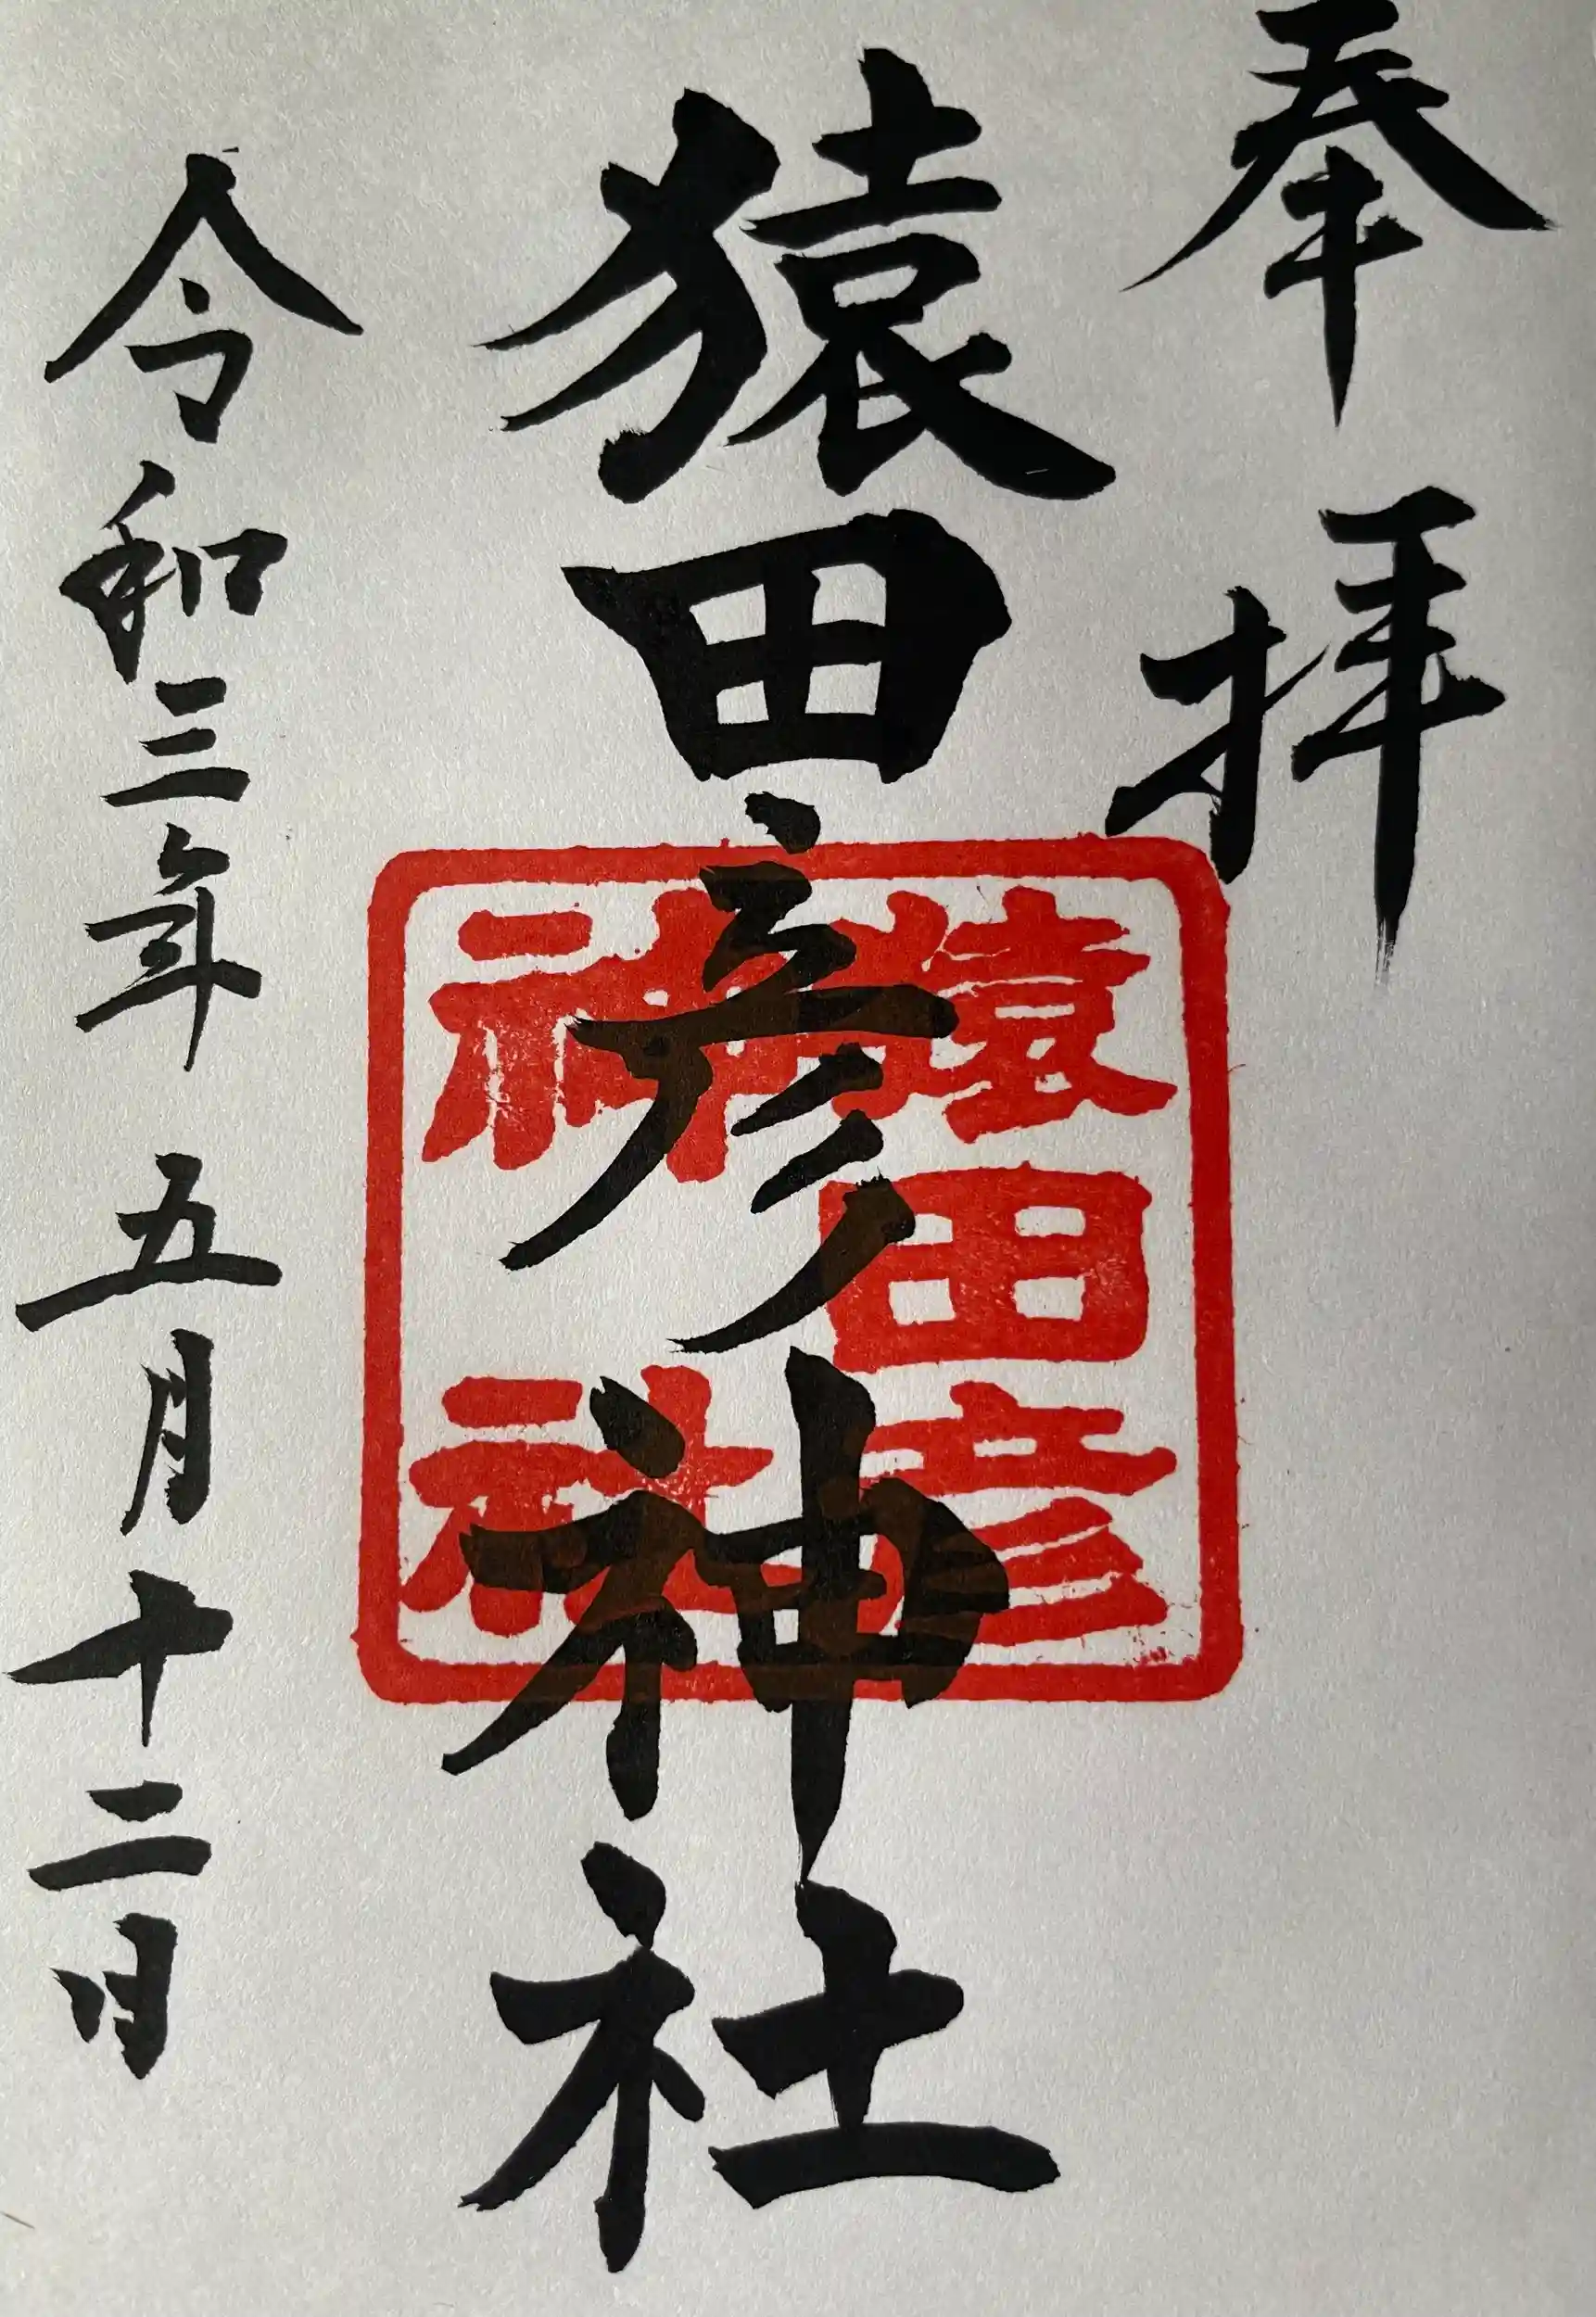 奉拝
猿田彦神社
猿田彦
神社
令和三年 五月十二日